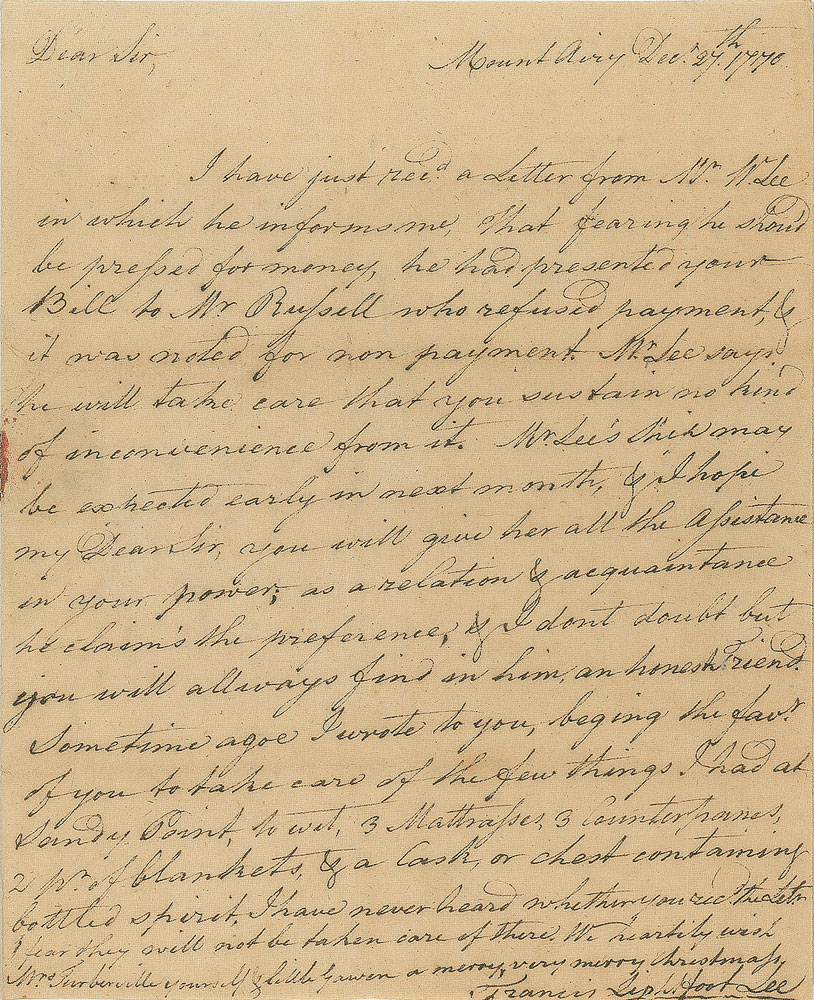 Dear Sir,
Mount Airy Decr. 27th. 1770
I have just recd. a Letter from Mr. W. Lee
in which he informs me, That fearing he should
be pressed for money, he had presented your
Bill to Mr Russell who refused payment, &
it was noted for non payment. Mr. Lee says
he will take care that you sustain no kind
of inconvenience from it. Mr. Lee's Ship may
be expected early in next month, & I hope
my Dear Sir, you will give her all the Assistance
in your power; as a relation & acquaintance
he claim's the preference, & I dont doubt but
you will allways find in him, an honest Friend.
Sometime agoe I wrote to you, beging the favr.
of you to take care of the few things I had at
Sandy Point, to wit, 3 Mattrasses, 3 Counterpanes,
2 pr. of blankets, & a Cask, or chest containing
bottled spirit. I have never heard whether you recd. the Letr.
I fear they will not be taken care of there. We heartily wish
Mrs. Turberville yourself & little Gawen a merry, very merry christmass,
Francis Lightfoot Lee